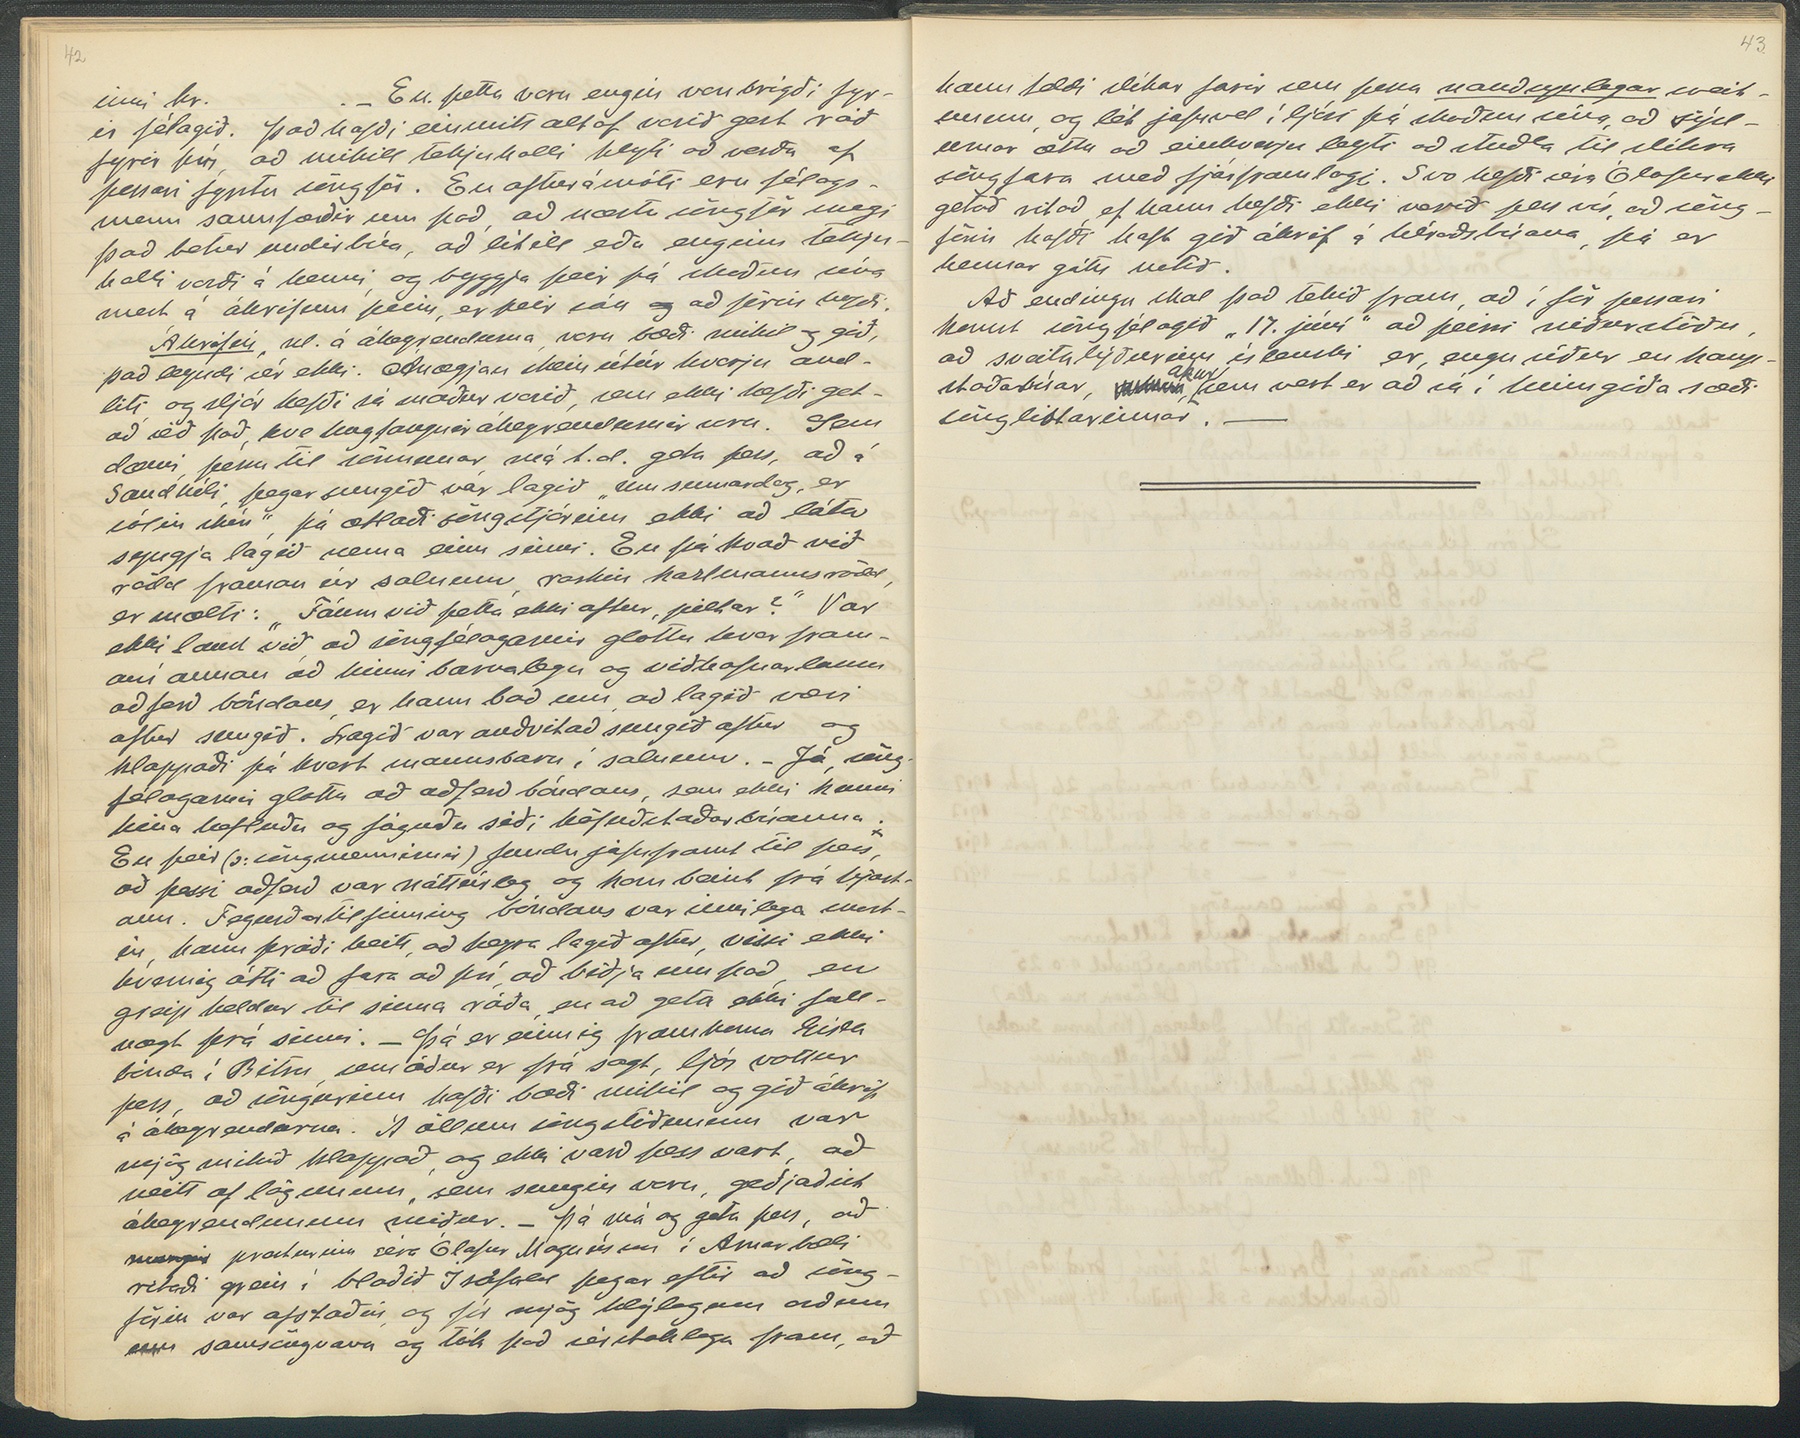 42
inni kr. . – En þetta voru engin vonbrigði fyr-
ir félagið. Það hafði einmitt altaf verið gert ráð
fyrir því, að mikill tekjuhalli hlyti að verða af
þessari fyrstu söngför. En afturámóti eru félags-
menn sannfærðir um það, að næstu söngför megi
það betur undirbúa, að lítill eða enginn tekju-
halli verði á henni, og byggja þeir þá skoðun sína
mest á áhrifum þeim, er þeir sáu og að förin hafði.
Áhrifin, nl. á áheyrendurna, voru bæði mikil og góð,
það leyndi sér ekki. Ánægjan skein útúr hverju and-
liti, og sljór hefði sá maður verið, sem ekki hefði get-
að séð það, hve hugfangnir áheyrendurnir voru. Sem
dæmi, þessu til sönnunar, má t.d. geta þess, að á
Sandhóli, þegar sungið var lagið „Um sumardag, er
sólin skín“, þá ætlaði söngstjórinn ekki að láta
syngja lagið nema einu sinni. En þá kvað við
rödd framan úr salnum, raskin karlmannsrödd,
er mælti: „Fáum við þetta ekki aftur, piltar?“ Var
ekki laust við, að söngfélagarnir glottu hver fram-
aní annan að hinni barnalegu og viðhafnarlausu
aðferð bóndans, er hann bað um, að lagið væri
aftur sungið. Lagið var auðvitað sungið aftur og
klappaði þá hvert mannsbarn í salnum. – Já, söng-
félagarnir glottu að aðferð bóndans, sem ekki kunni
hina hefluðu og fáguðu siði höfuðstaðarbúanna.
En þeir (ɔ: söngmennirnir) fundu jafnframt til þess,
að þessi aðferð var náttúrleg og kom beint frá hjart-
anu. Fegurðartilfinning bóndans var innilega snort-
in, hann þráði heitt að heyra lagið aftur, vissi ekki
hvernig átti að fara að því, að biðja um það, en
greip heldur til sinna ráða, en að geta ekki full-
nægt þrá sinni. – Þá er einnig framkoma Gísla
bónda í Bitru, sem áður er frá sagt, ljós vottur
þess, að söngurinn hafði bæði mikil og góð áhrif
á áheyrendurna. Á öllum söngstöðunum var
mjög mikið klappað, og ekki varð þess vart, að
neitt af lögunum, sem sungin voru, geðjaðist
áheyrendunum miður. – Þá má og geta þess, að
presturinn séra Ólafur Magnússon í Arnarbæli
ritaði grein í blaðið Ísafold þegar eftir að söng-
förin var afstaðin, og fór mjög hlýlegum orðum
um samsöngvana og tók það sérstaklega fram, að
43
hann teldi slíkar farir sem þessa nauðsynlegar sveit-
unum, og lét jafnvel í ljósi þá skoðun sína, að sýsl-
urnar ættu að einhverju leyti að stuðla til slíkra
söngfara með fjárframlagi. Svo hefði séra Ólafur ekki
getað ritað, ef hann hefði ekki verið þess vís, að söng-
förin hafði haft góð áhrif á héraðsbúana, þá er
hennar gátu notið.
Að endingu skal það tekið fram, að í för þessari
komst söngfélagið „17. júní“ að þeirri niðurstöðu,
að sveitalýðurinn íslenski er, engu síður en kaup-
staðarbúar, akur, sem vert er að sá í hinn góða sæði
sönglistarinnar. —